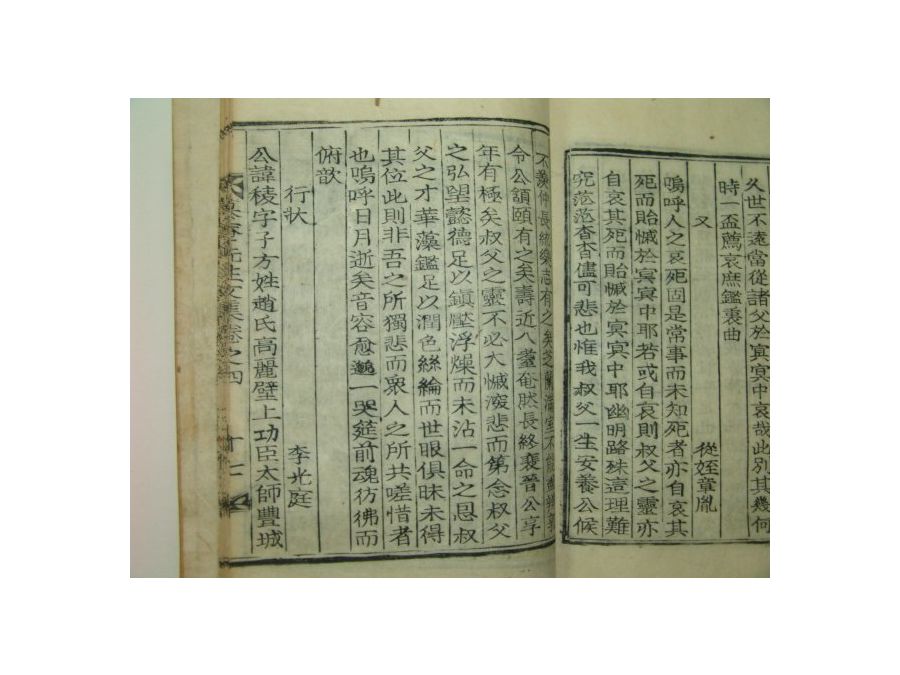 久世不遠當從諸父於冥冥中哀哉此別其幾何
時一盃薦哀庶鑑衷曲
又
從姪章胤
嗚呼人之哀死固是常事而未知死者亦自哀其
死而貽慽於冥冥中耶若或自哀則叔父之靈亦
自哀其死而貽慽於冥冥中耶幽明路殊這理難
究茫茫杳杳儘可悲也惟我叔父一生安養公候
不羨仲長統樂志有之矣芝蘭滿室不能
令公頷頤有之矣壽近八耋奄然長終裵晉公享
年有極矣叔父之靈不必大慽深悲而第念叔父
之弘望懿德足以鎭壓浮燥而未沾一命之恩叔
父之才華藻鑑足以潤色絲綸而世眼俱昧未得
其位此則非吾之所獨悲而衆人之所共嗟惜者
也嗚呼日月逝矣音容愈邈一哭筵前魂彷彿而
俯歆
行狀
李光庭
公諱稜字子方姓趙氏高麗壁上功臣太師豐城
先生文集卷之四